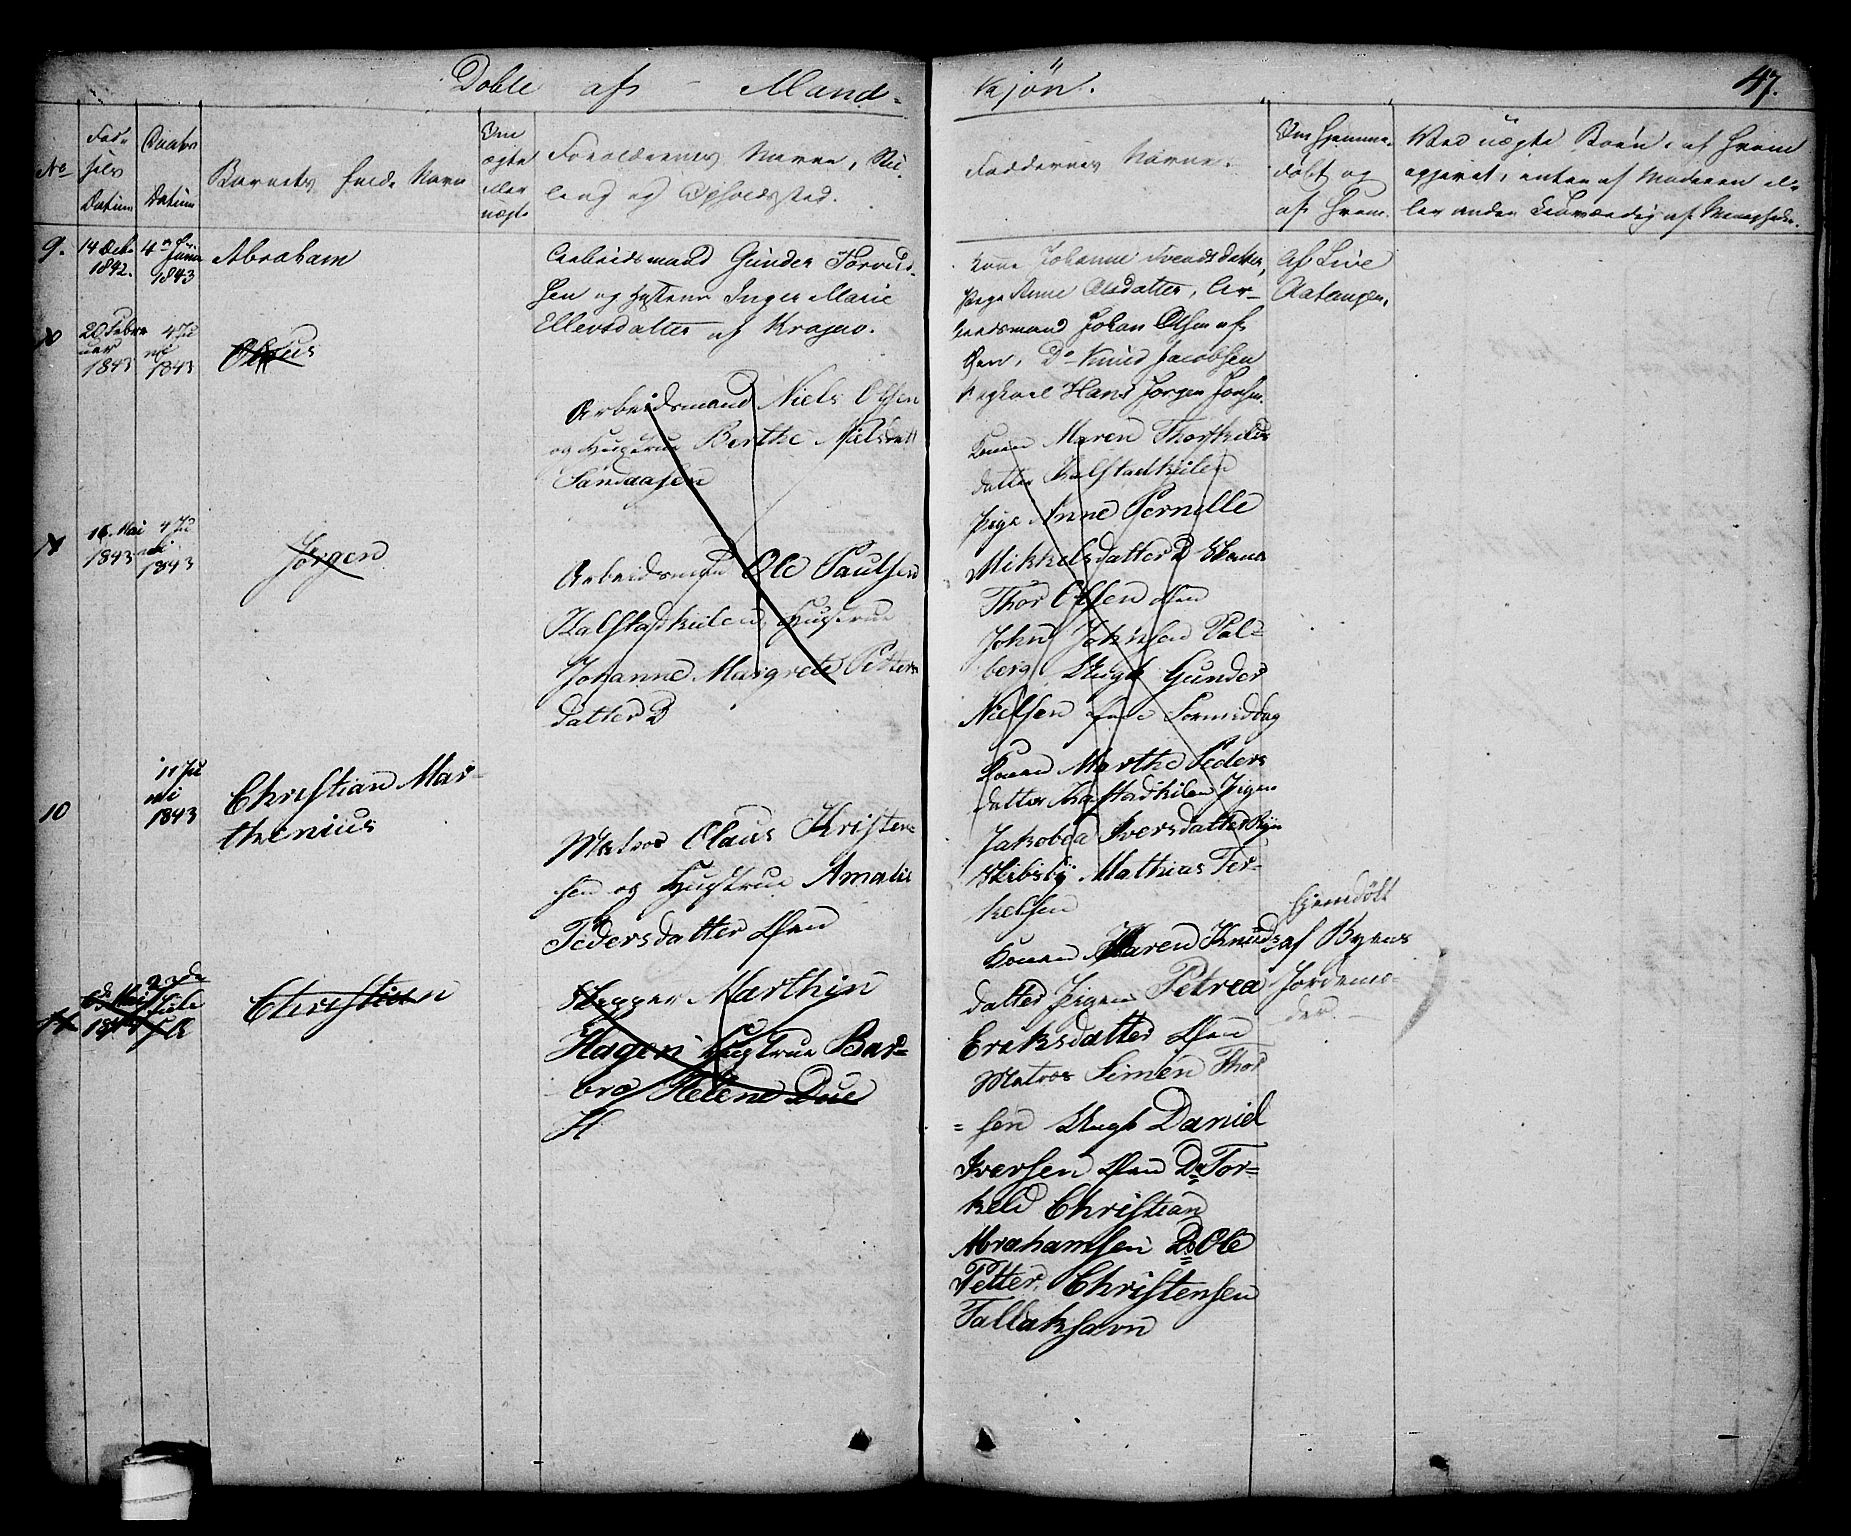 Døbte af Mand-
Kjøn.
47.
No
Fød-
sels
Datum
Daabs
Datum
Barnets fulde Navn
Om
ægte
eller
uægte
Forældrenes Navne, Stil-
ling og Opholdssted.
Faddernes Navne.
Om hjemme-
døbt og
af hvem.
Ved uægte Børn, af hvem
opgivet, enten af Moderen el-
ler anden
9.
14 Octb.
1842.
4 Juni
1843
Abraham
Arbeidsmand Gunder Torvild-
sen og Hustrue Inger Marie
Ellersdatter af Kragerø.
Kone Johanne Svendsdatter,
Pige Anne Olsdatter, Ar-
beidsmand Johan Olsen af
Øen, Do Knud Jacobsen
Ungkarl Hans Jørgen Jonsen.
Af Live
Aatangen.
20 Febru
uar
1843
4 Ju
ni
1843
Olaus
Arbeidsmand Niels Olsen
og Hugstrue Berthe Nielsdatt
Sandaasen
Konen Maren Thorkilds
datter Kalstadkilen
Pige Anne Pernille
Mikkelsdatter D
Thor Olsen Øen
John Johnsen Val-
berg, Ungk Gunder
Nielsen
16 Mai
1843
4 Ju
ni
1843
Jørgen
Arbeidsmand Ole Paulsen
Kalstadkilen, Hugstrue
Johanne Margrete Petters
datter D
Konen Marthe Peders
datter Kalstadkilen Pigen
Jakobea Iversdatter
Skibsby Mathias Ter-
kelsen
10
11 Ju
ni
1843
Christian Mar-
thenius
Matros Olaus Kristen-
sen og Hugstrue Amalie
Pedersdatter Øen
Konen Karen Knuds-
datter Pigen Petrea
Eriksdatter Øen
Matros Simen Thor
-sen Ungk Daniel
Iversen Øen Do Tor-
keld Christian
Abrahamsen Do Ole
Petter Christensen
Tallakshavn
Hjemdøbt
af Byens
Jordemo-
der.
11
Mai
1843
Christian
Skipper Marthin
Hagen Hugstrue Bar-
bra Helene Due
H